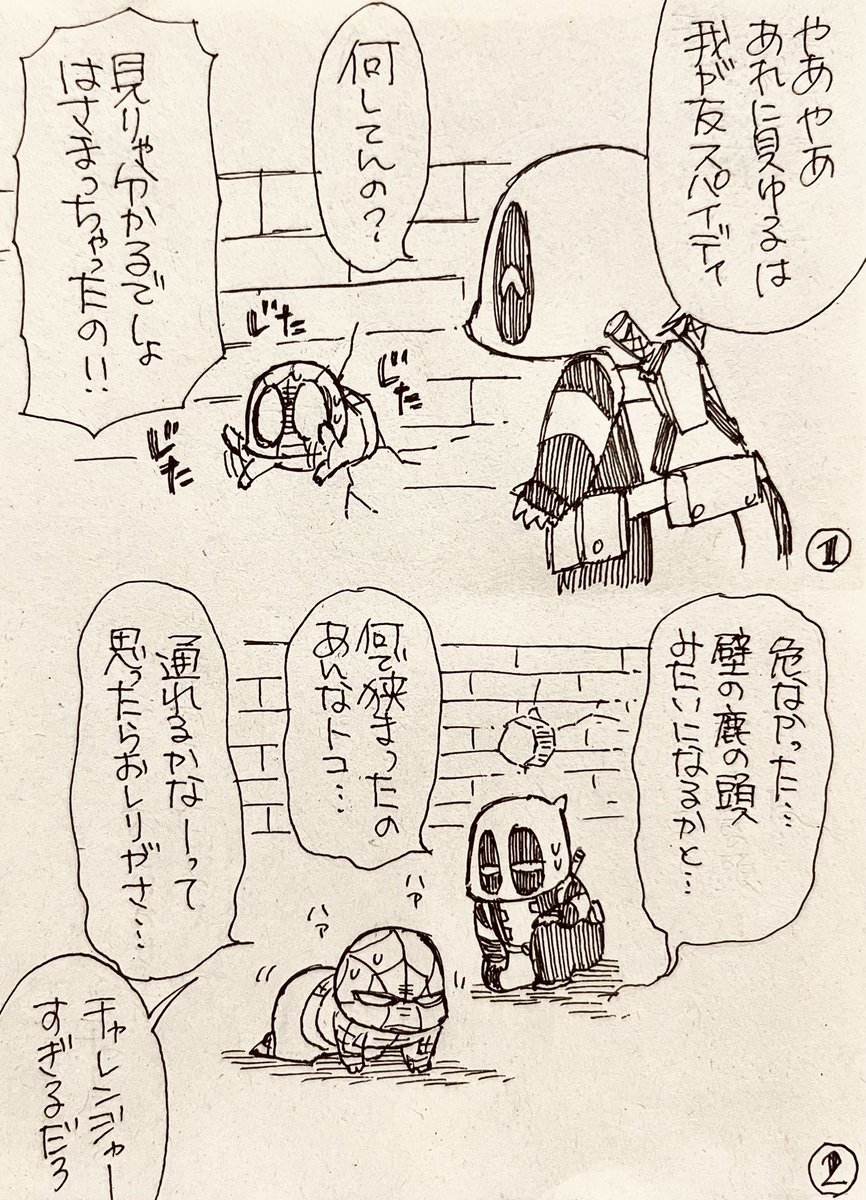 やあやあ
あれに見ゆるは
我が友スパイディ
何してんの?
見りゃ分かるでしょ
はさまっちゃったの!!
じた
じた
じた
1
危なかった…
壁の鹿の頭
みたいになるかと…
何で狭まったの
あんなトコ…
通れるかなーって
思ったらおしりがさ…
ハァ
ハァ
チャレンジャー
すぎるだろ
2